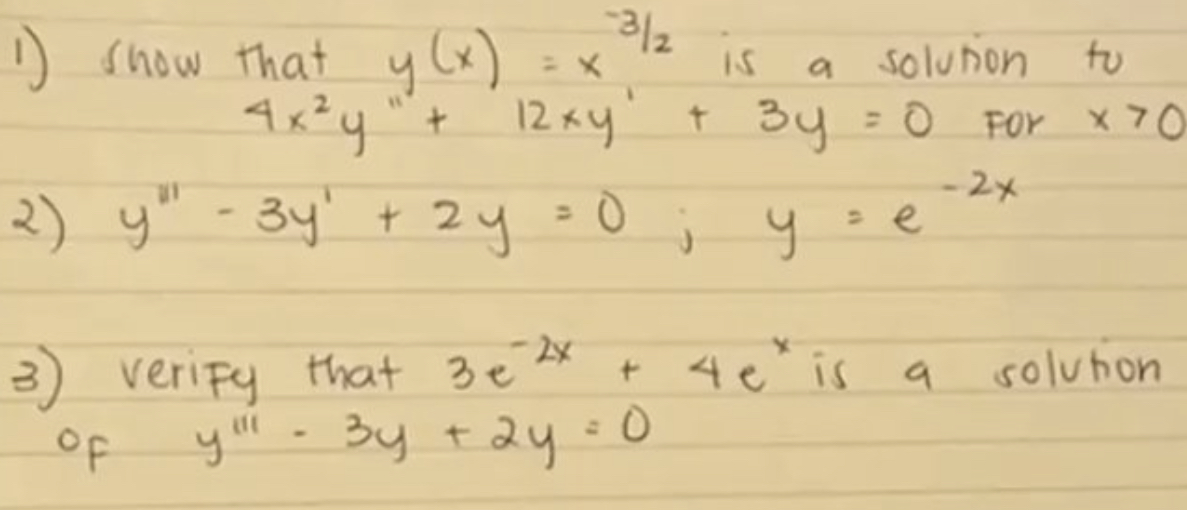 1) show that y(x) = x^-3/2 is a solution to
4x²y" + 12xy' + 3y = 0 For x > 0
2) y''' - 3y' + 2y = 0 ; y = e^-2x
3) verify that 3e^-2x + 4e^x is a solution
of y''' - 3y + 2y = 0